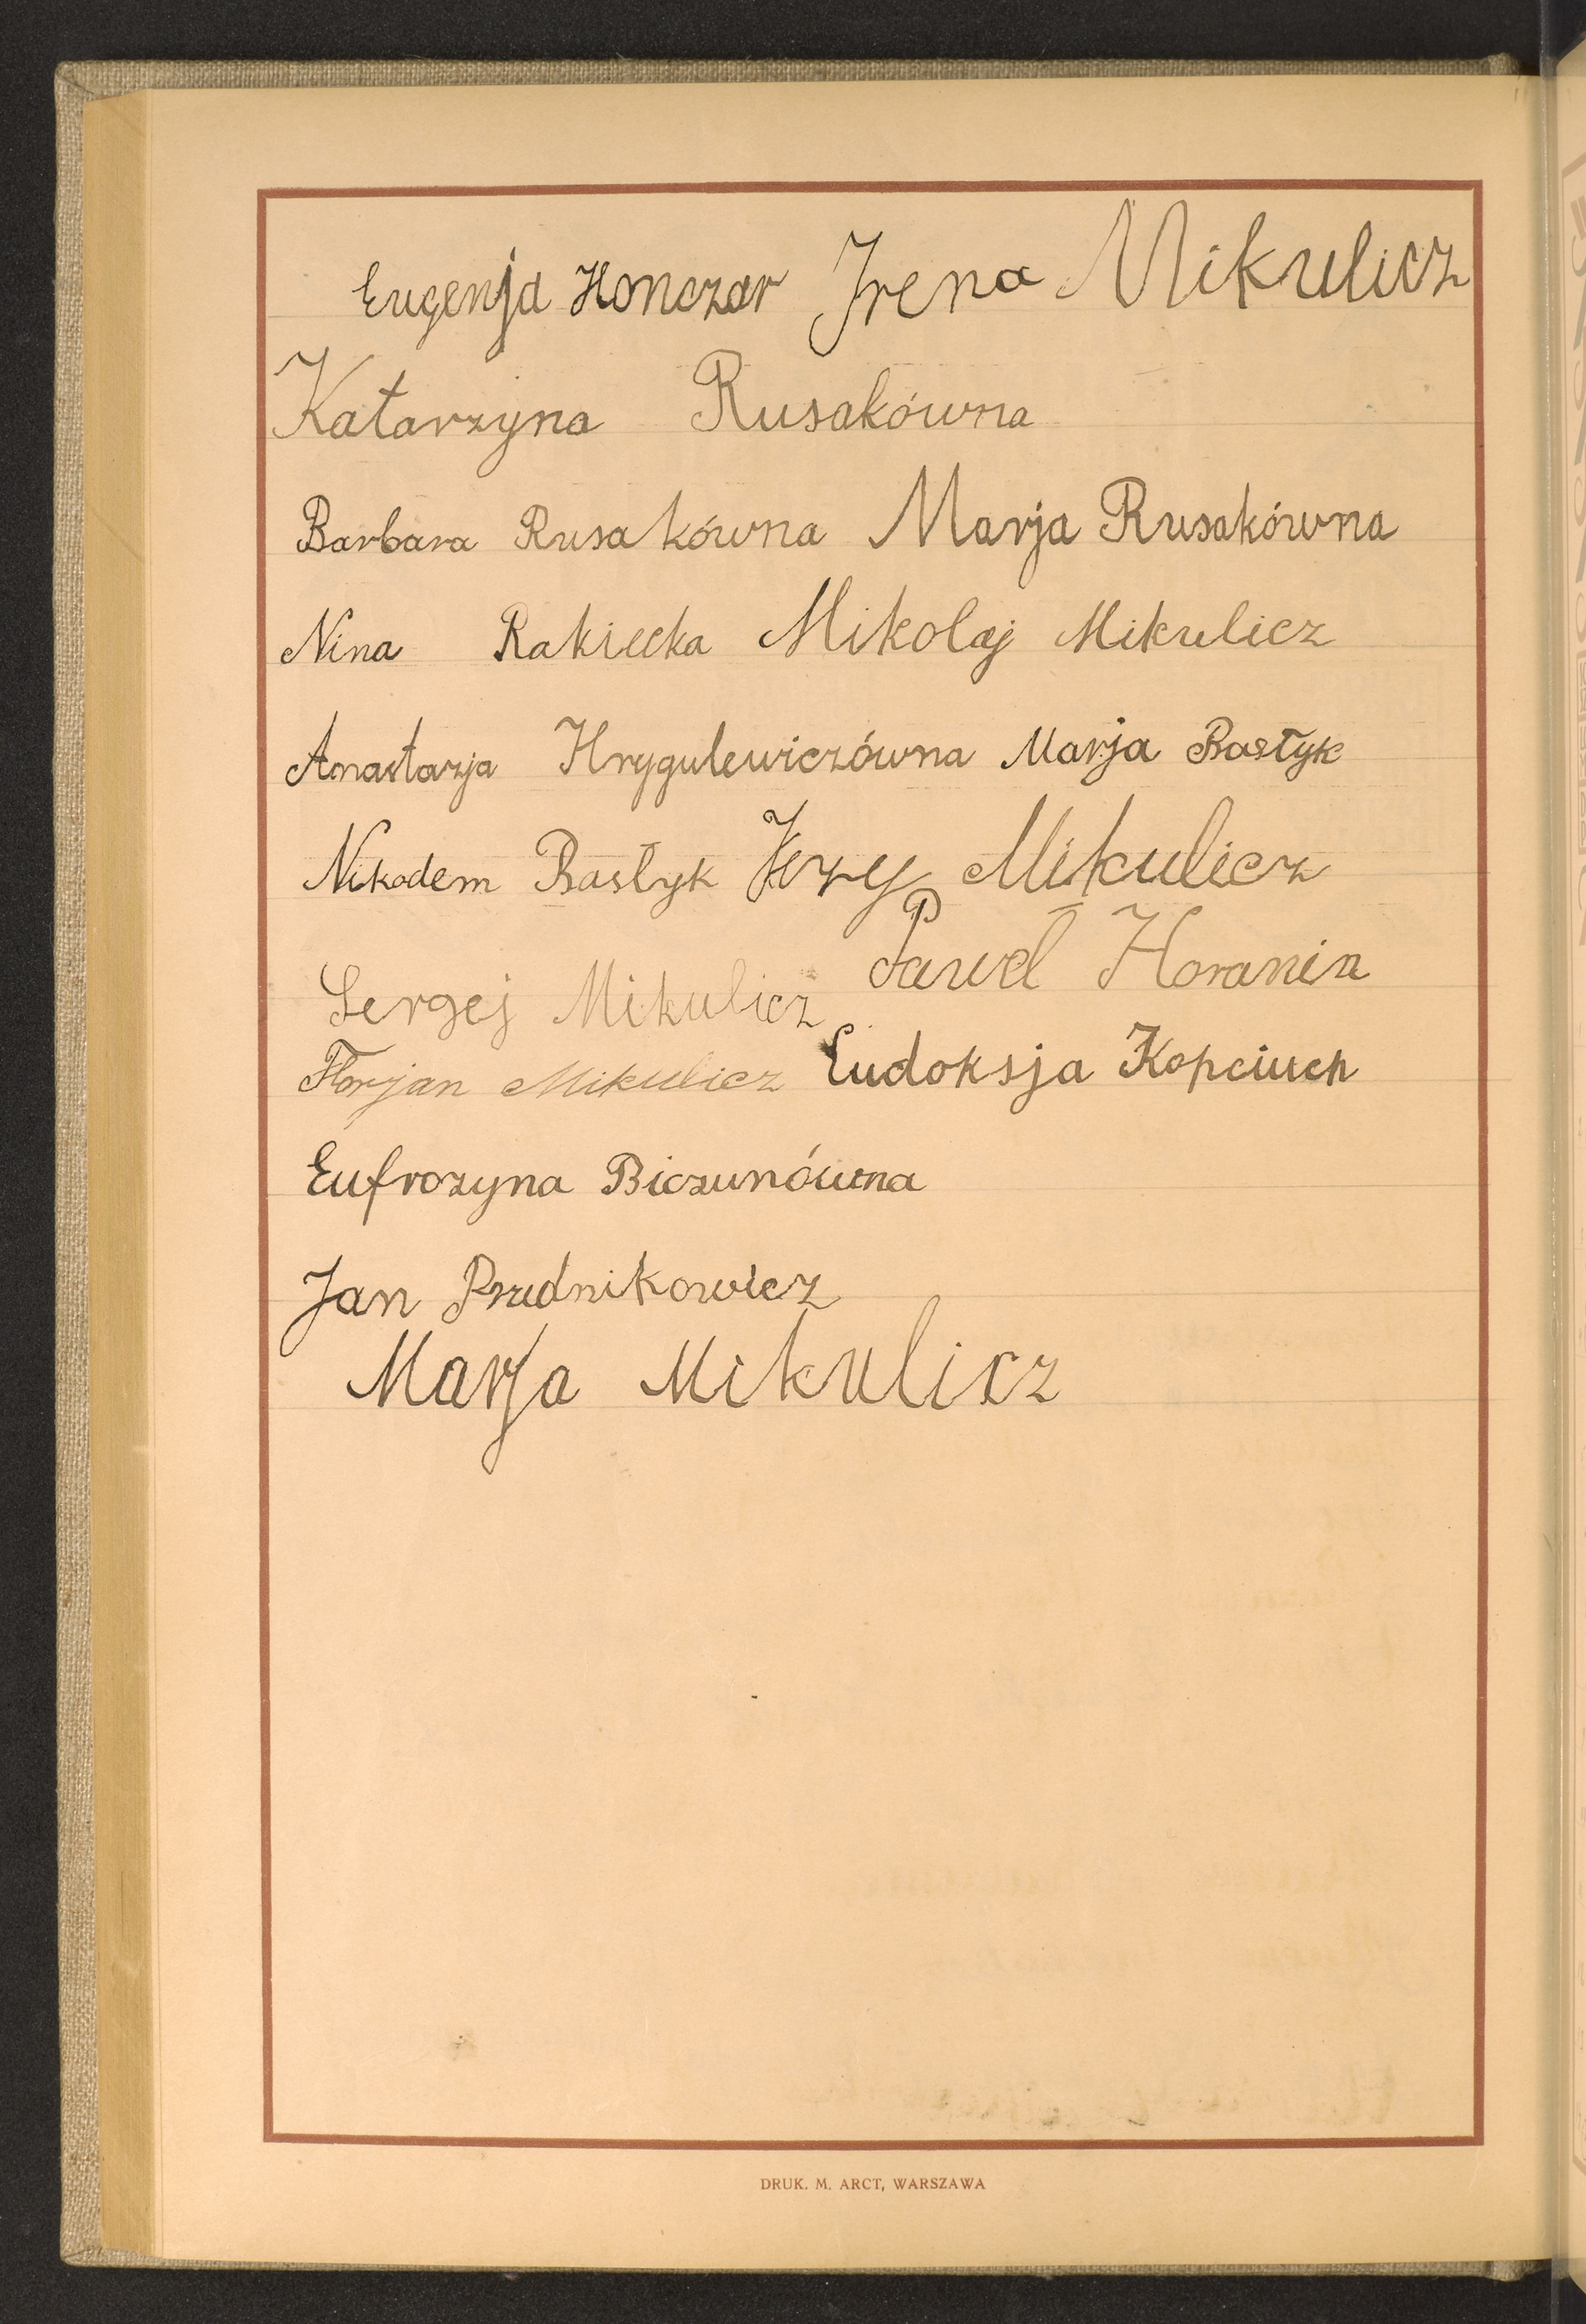 Eugenja Honczar Irena Mikulicz
Katarzyna Rusakówna
Barbara Rusakówna Marja Rusakówna
Nina Rakiecka Mikołaj Mikulicz
Anastazja Hrygulewiczówna Marja Bastyk
Nikodem Bastyk Jerzy Mikulicz
Sergej Mikulicz Paweł Horanin
Florjan Mikulicz Eudoksja Kopciuch
Eufrozyna Biczunówna
Jan Prudnikowicz
Marja Mikulicz
DRUK. M. ARCT, WARSZAWA